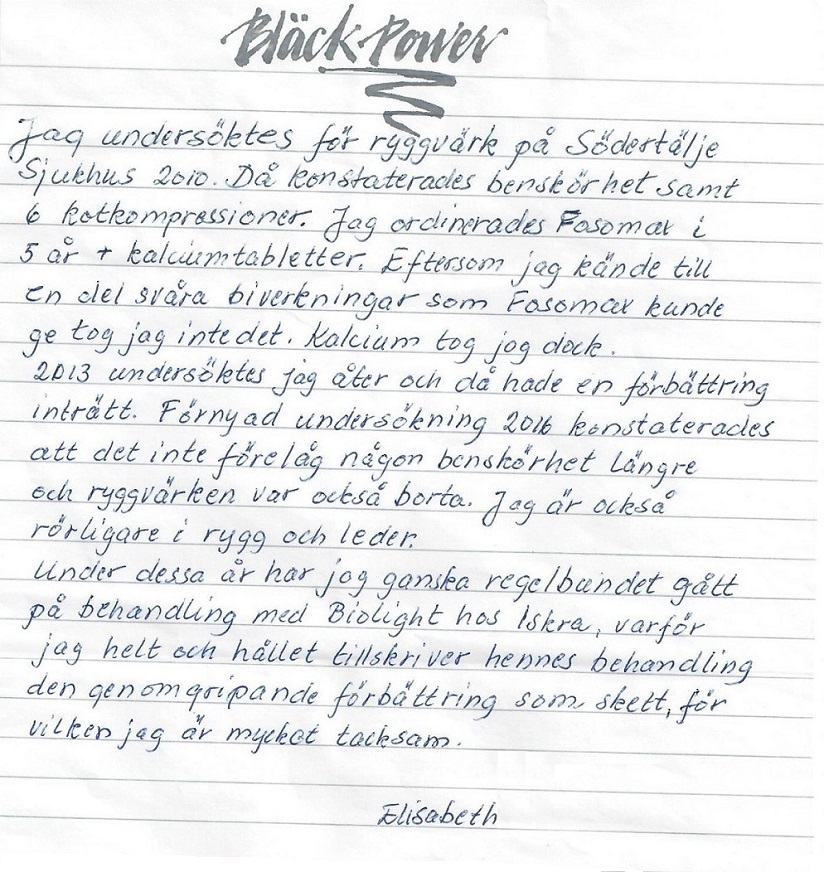 Bläck Power
Jag undersöktes för ryggvärk på Södertälje
Sjukhus 2010. Då konstaterades benskörhet samt
6 kotkompressioner. Jag ordinerades Fosomax i
5 år + kalciumtabletter. Eftersom jag kände till
en del svåra biverkningar som Fosomax kunde
ge tog jag inte det. Kalcium tog jag dock.
2013 undersöktes jag åter och då hade en förbättring
inträtt. Förnyad undersökning 2016 konstaterades
att det inte förelåg någon benskörhet längre
och ryggvärken var också borta. Jag är också
rörligare i rygg och leder.
Under dessa år har jag ganska regelbundet gått
på behandling med Biolight hos Iskra, varför
jag helt och hållet tillskriver hennes behandling
den genomgripande förbättring som skett, för
vilken jag är mycket tacksam.
Elisabeth